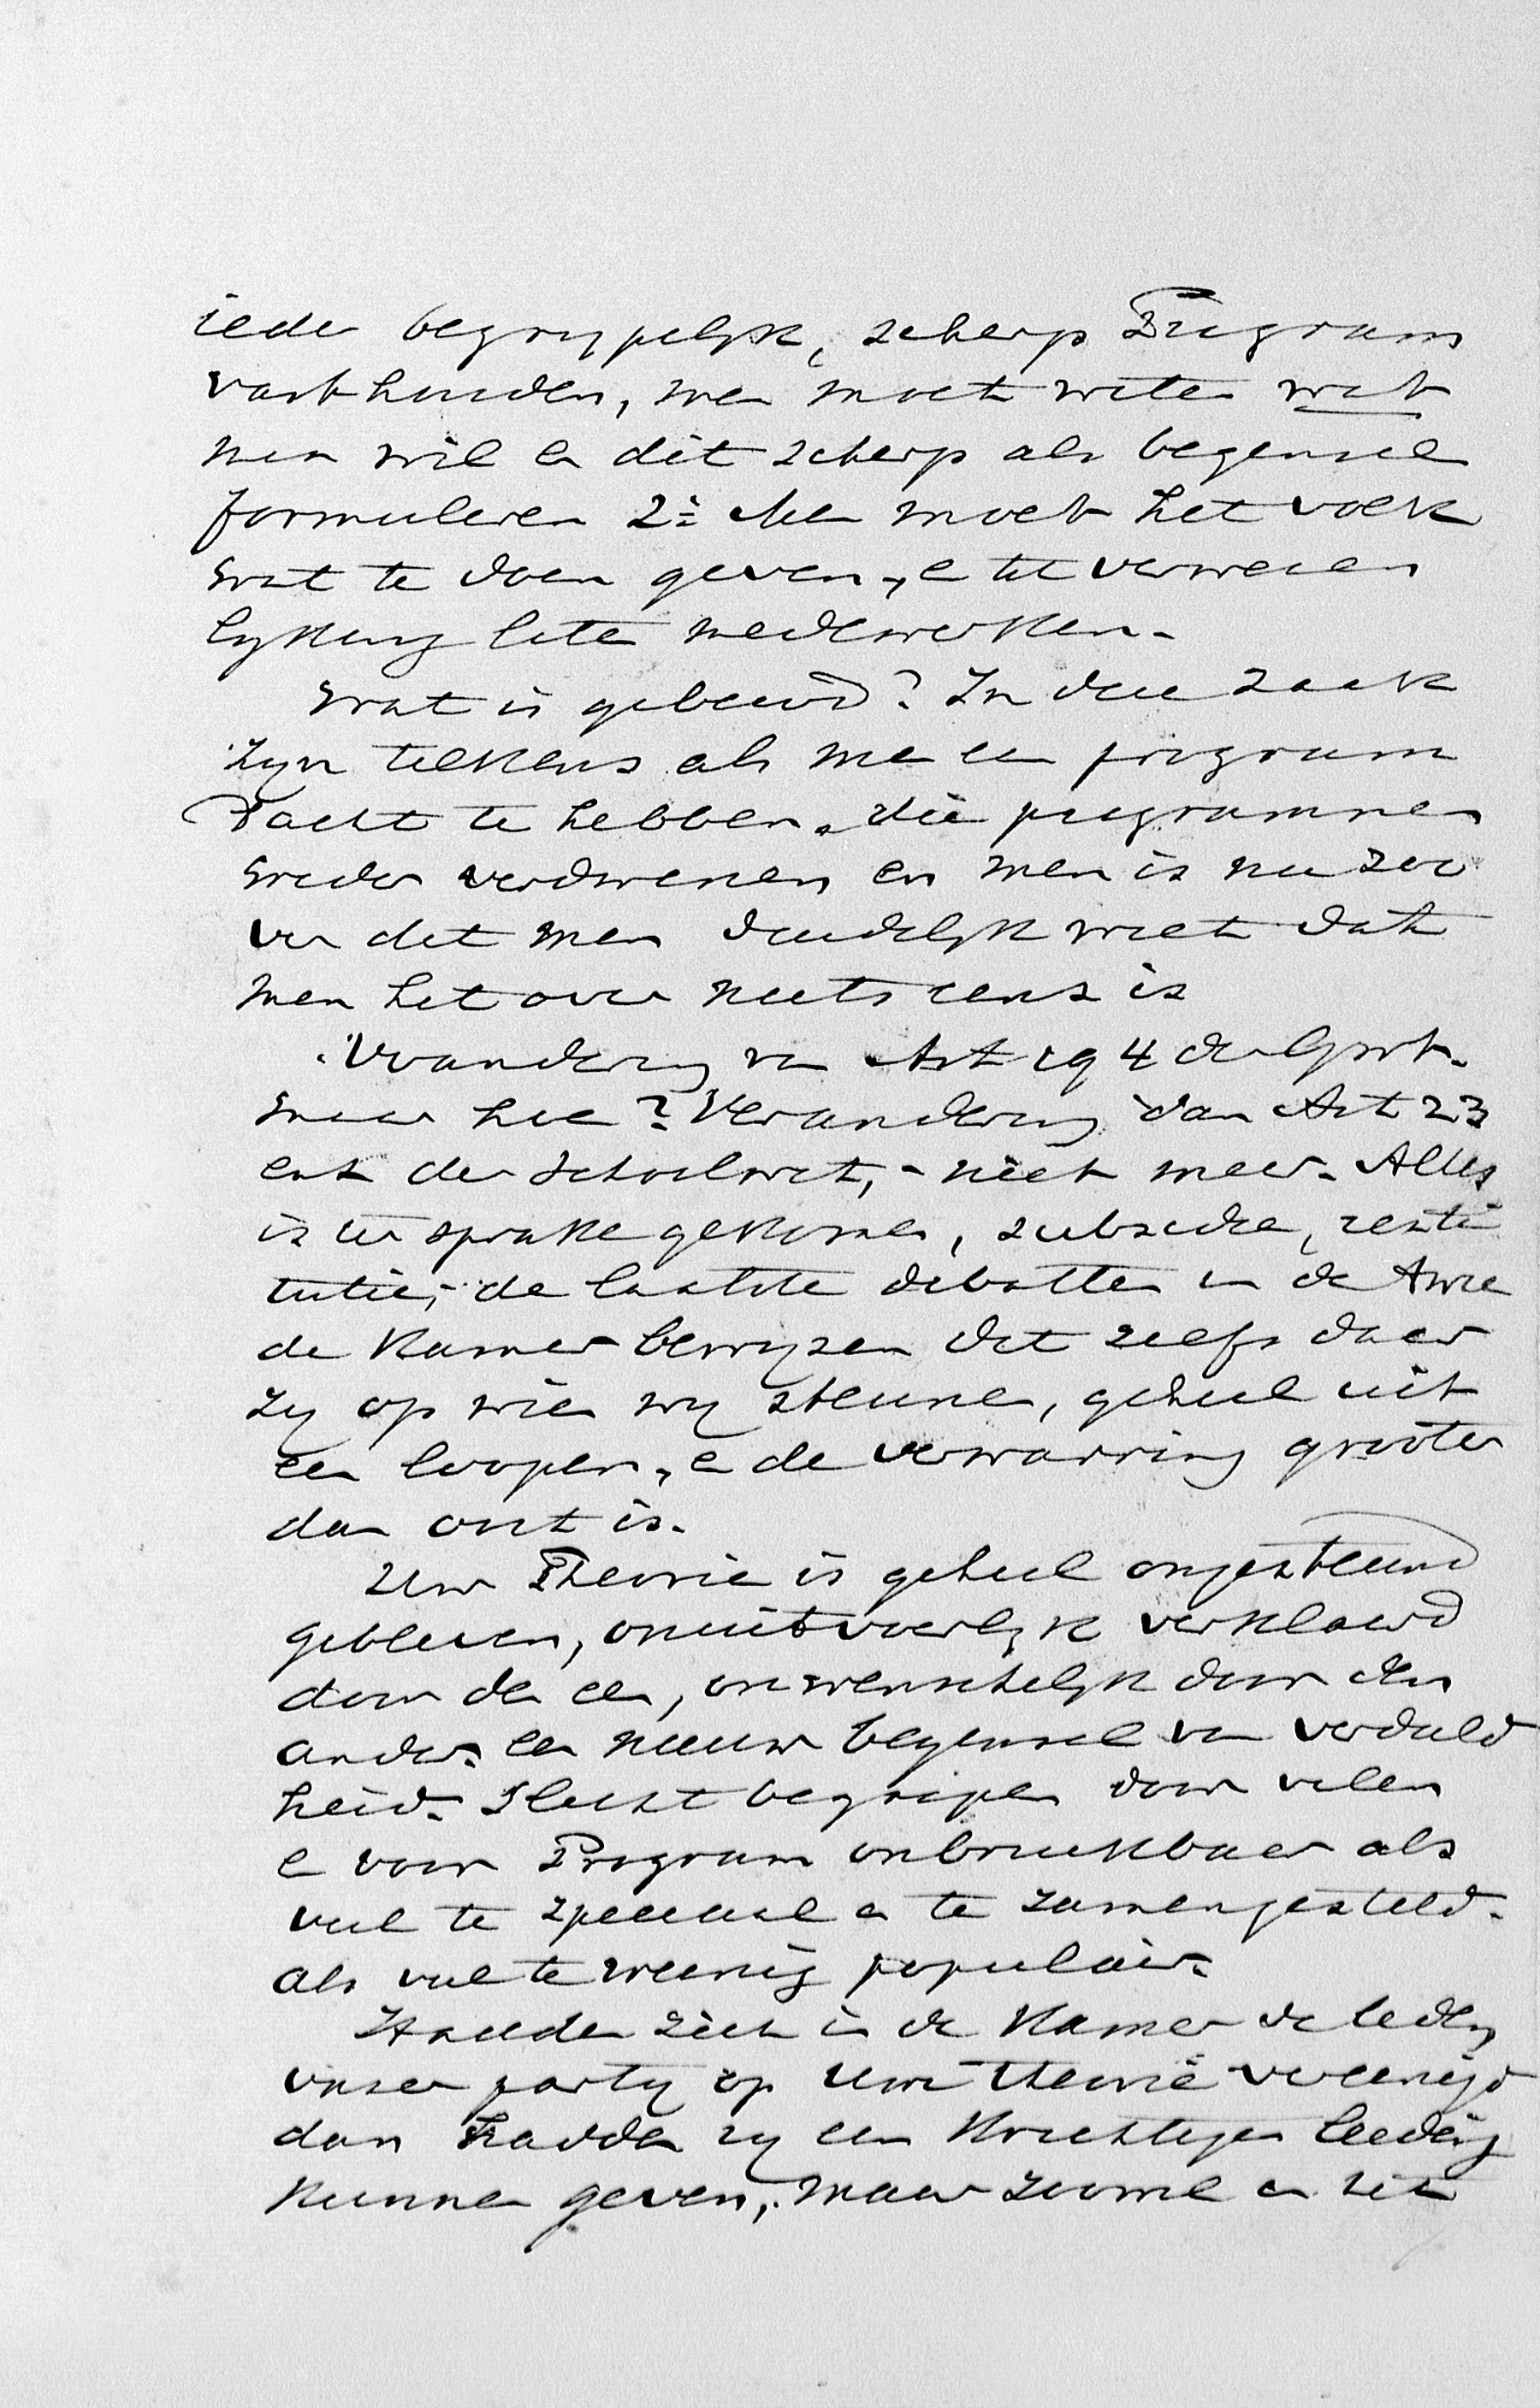 ieder begrypelyk, scherp Program
vasthouden, men moet weten wat
men wil en dit scherp als beginsel
formuleren 2º Men moet het volk
wat te doen geven, en tot verwezen
lyking laten medewerken.
Wat is gebeurd? In deze zaak
zyn telkens als men een program
dacht te hebben, die programmen
weder verdwenen en men is nu zoo
ver dat men duidelyk weet dat
men het over niets eens is
Verandering van Art 194 der Grwt.
maar hoe? Verandering van Art 23
enz der Schoolwet, - niet meer. Alles
is ter sprake gekomen, subsidie, resti
tutie, - de laatste debatten in de Twee
de Kamer bewyzen dat zelfs daar
zy op wien wy steunen, geheel uit
een loopen, en de verwarring grooter
dan ooit is.
Uw Theorie is geheel ongesteund
gebleven, onuitvoerlyk verklaard
door den een, onwenschelyk door den
ander. een nieuw beginsel van verdeeld
heid. Slecht begrepen door velen
en voor Program onbruikbaar als
veel te speciaal en te zamengesteld.
als veel te weinig populair.
Hadden zich in de Kamer de leden
onzer party op Uwe theorie vereenigd
dan hadden zy een krachtige leiding
kunnen geven, maar zoowel in het